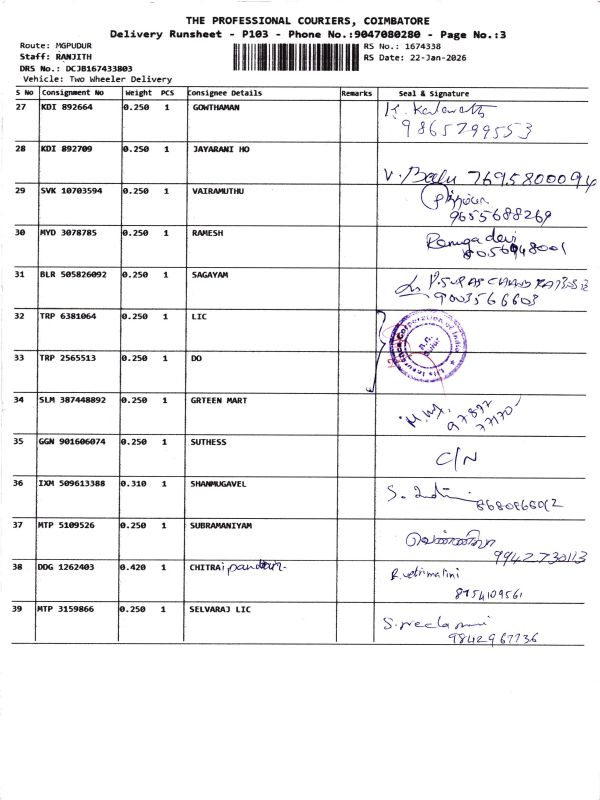 THE PROFESSIONAL COURIERS, COIMBATORE
Delivery Runsheet - P103 - Phone No.:9047080280 - Page No.:3
Route: MGPUDUR
Staff: RANJITH
DRS No.: DCJB167433803
Vehicle: Two Wheeler Delivery
RS No.: 1674338
RS Date: 22-Jan-2026
S No Consignment No Weight PCS Consignee Details Remarks Seal & Signature
27 KDI 892664 0.250 1 GOWTHAMAN K.
9865799553
28 KDI 892709 0.250 1 JAYARANI HO
V. Balu 7695800094
29 SVK 10703594 0.250 1 VAIRAMUTHU
9655688269
30 MYD 3078785 0.250 1 RAMESH Ramya devi
8056948001
31 BLR 505826092 0.250 1 SAGAYAM
9003566603
32 TRP 6381064 0.250 1 LIC
Life Insurance Corporation of India
33 TRP 2565513 0.250 1 DO
34 SLM 387448892 0.250 1 GRTEEN MART
97897
77170
35 GGN 901606074 0.250 1 SUTHESS C/N
36 IXM 509613388 0.310 1 SHANMUGAVEL S.
37 MTP 5109526 0.250 1 SUBRAMANIYAM
9942730113
38 DDG 1262403 0.420 1 CHITRAi pandian R. vetrimalini
8754109561
39 MTP 3159866 0.250 1 SELVARAJ LIC S.
9842967736